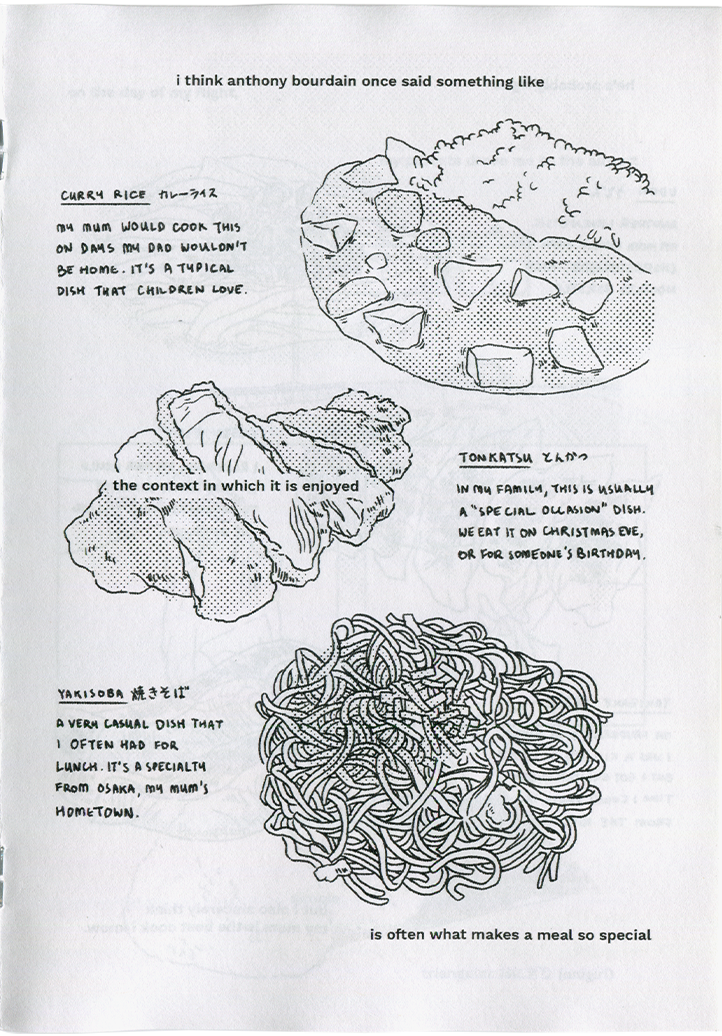 i think anthony bourdain once said something like
CURRY RICE カレーライス
MY MUM WOULD COOK THIS
ON DAYS MY DAD WOULDN'T
BE HOME. IT'S A TYPICAL
DISH THAT CHILDREN LOVE.
the context in which it is enjoyed
TONKATSU とんかつ
IN MY FAMILY, THIS IS USUALLY
A "SPECIAL OCCASION" DISH.
WE EAT IT ON CHRISTMAS EVE,
OR FOR SOMEONE'S BIRTHDAY.
YAKISOBA 焼きそば
A VERY CASUAL DISH THAT
I OFTEN HAD FOR
LUNCH. IT'S A SPECIALTY
FROM OSAKA, MY MUM'S
HOMETOWN.
is often what makes a meal so special